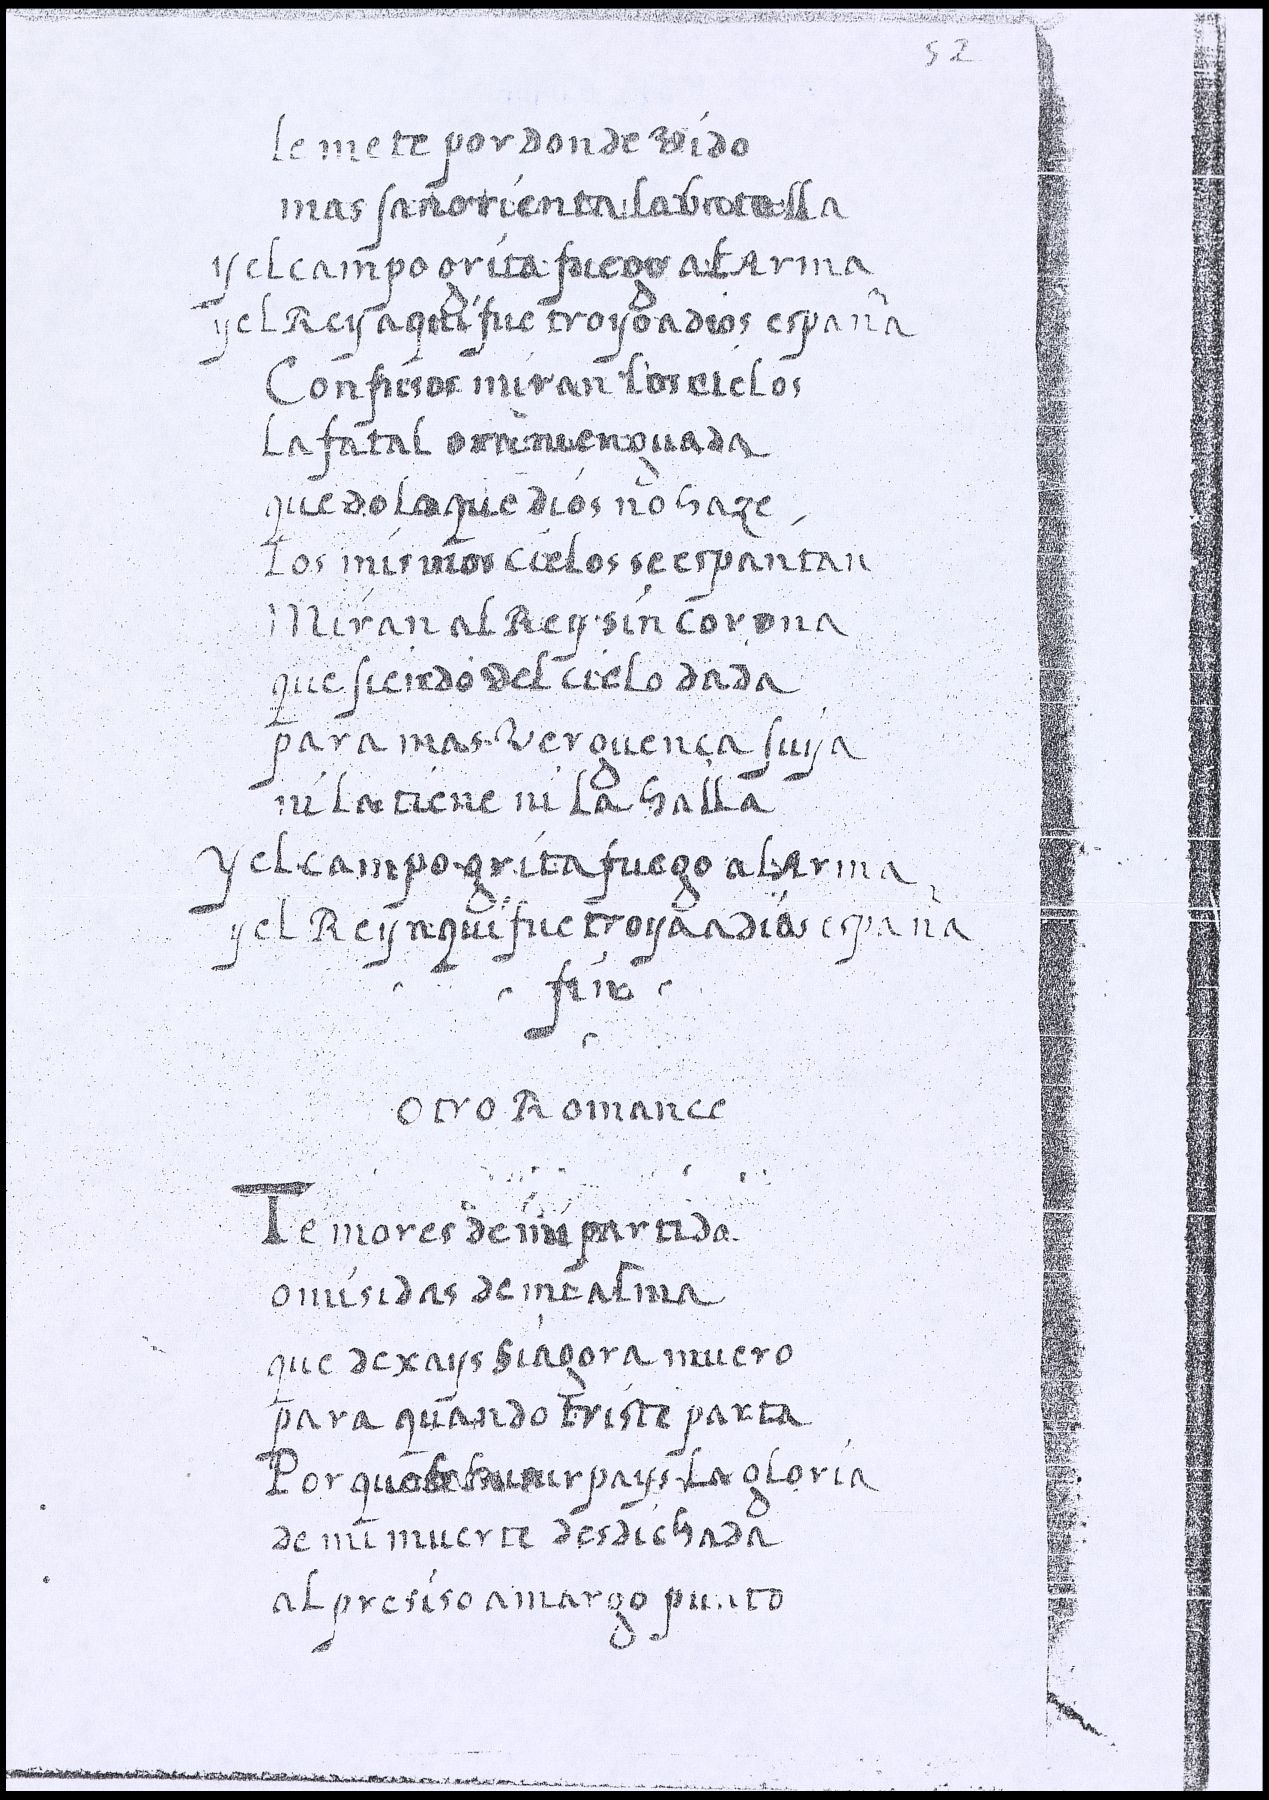 52
le mete por donde vido
mas sangrienta la batalla
y el campo grita fuego al Arma
y el Rey aqui fue troya adios españa
Confusos miran los cielos
la fatal menguada
quedo la que dios no haze
los mismos cielos se espantan
Miran al Rey sin Corona
que siendo del cielo dada
para mas verguença suya
ni la tiene ni la halla
y el campo grita fuego al Arma
y el Rey aqui fue troya adios españa
fin
otro Romance
Temores de mi partida
omisidas de me alma
que dexays si agora muero
para quando triste parta
Por usurpays la gloria
de mi muerte desdichada
al presiso amargo punto